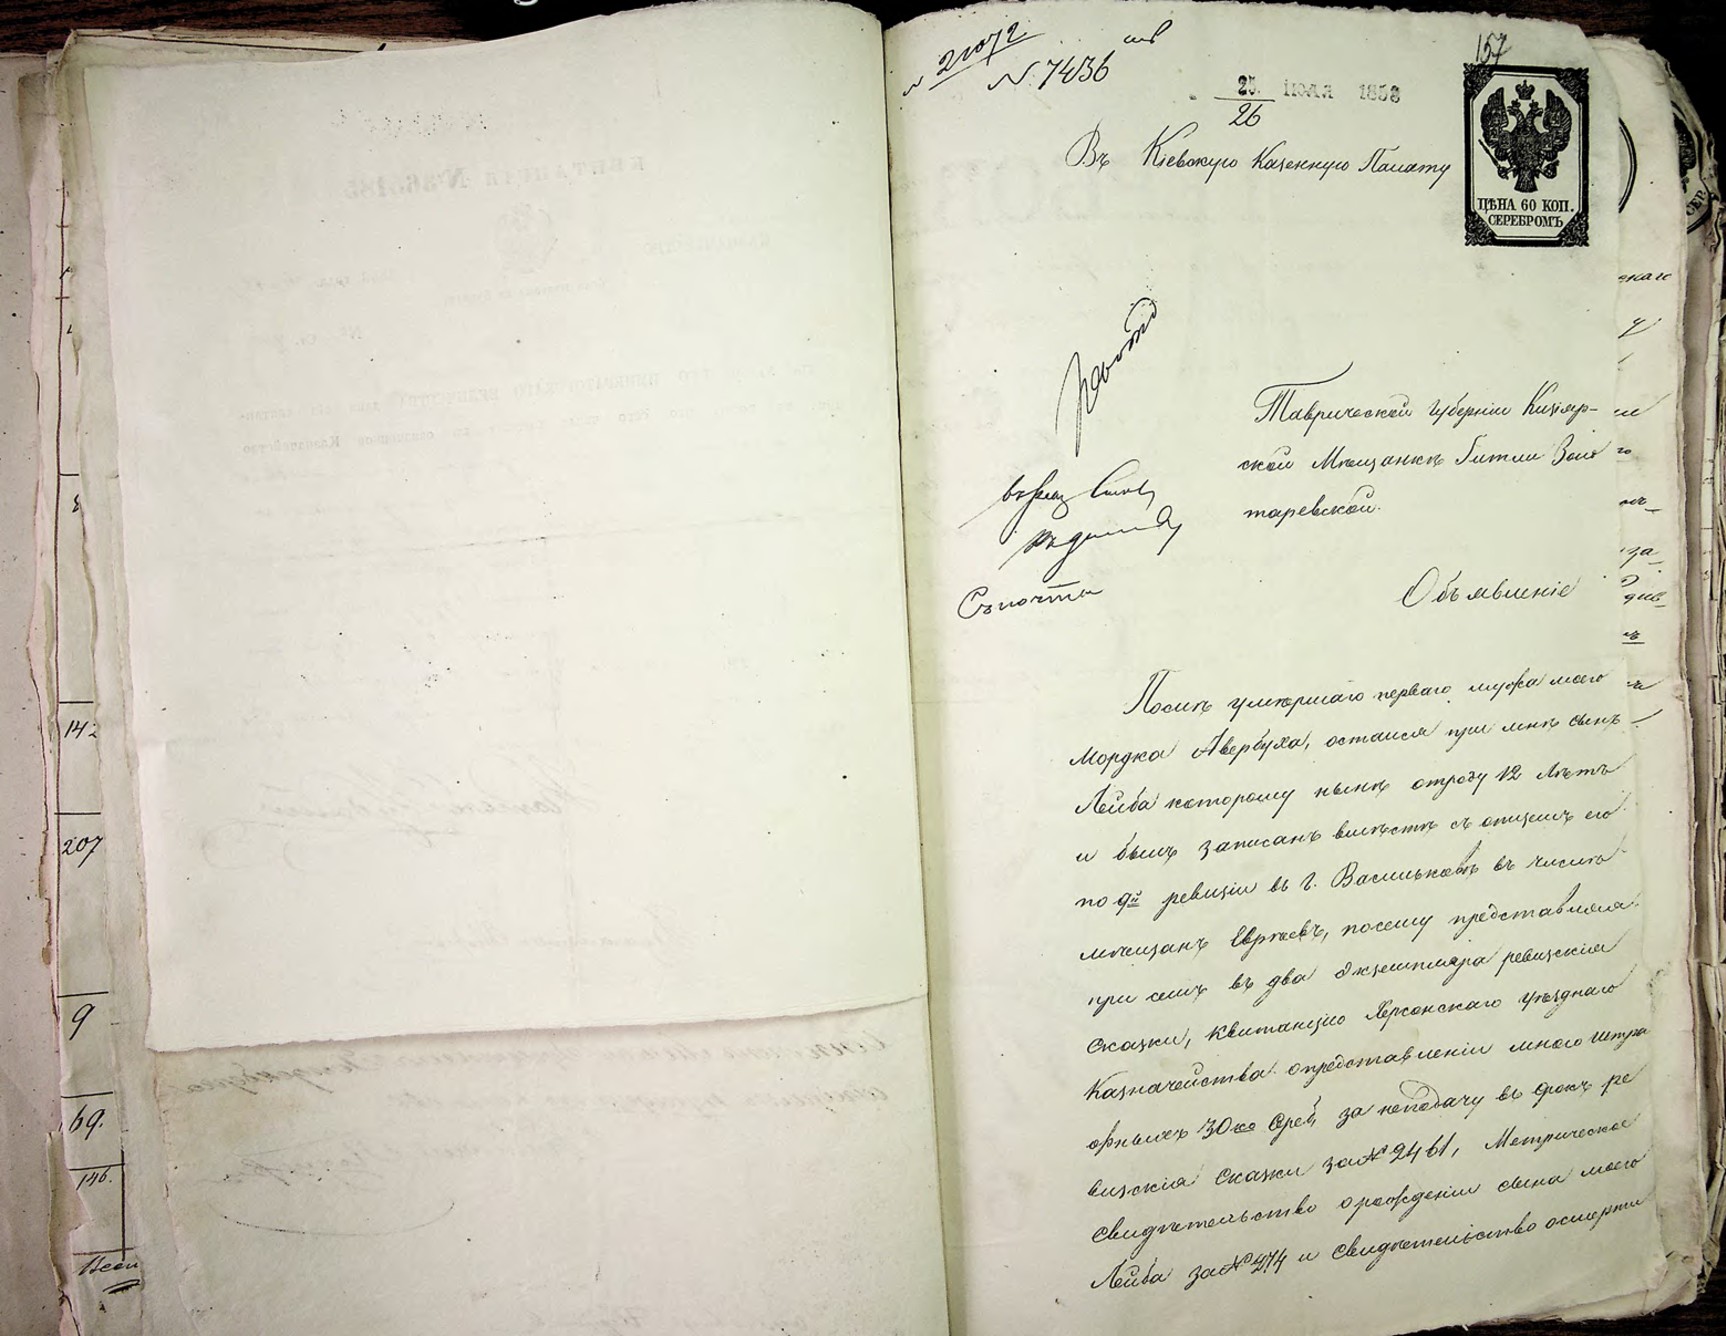 142
207
9
69.
146.
Всего
№ 21072
№ 7436
157
25. ІЮЛЯ 1858
26
Въ Кіевскую Казенную Палату
ЦѢНА 60 КОП.
СЕРЕБРОМЪ
Таврической Губерніи
ской Мѣщанки Гитли Золо
таревской.
Съ почты
Объявленіе
Послѣ умершаго перваго мужа моего
Мордка Авербуха, остался при мнѣ сынъ
Лейба которому нынѣ отроду 12 лѣтъ
и былъ записанъ вмѣстѣ съ отцемъ его
по 9й ревизіи въ г. Васильковѣ въ числѣ
мѣщанъ Евреевъ, посему представляя
при семъ въ два экземпляра ревизскія
сказки, квитанцію Херсонскаго Уѣзднаго
Казначейства о представленіи мною штра
фныхъ 30 ко Среб, за неподачу въ срокъ ре
визскія Сказки за № 2461, Метрическое
свидѣтельство о рожденіи сына моего
Лейба за № 274 и свидѣтельство о смерти